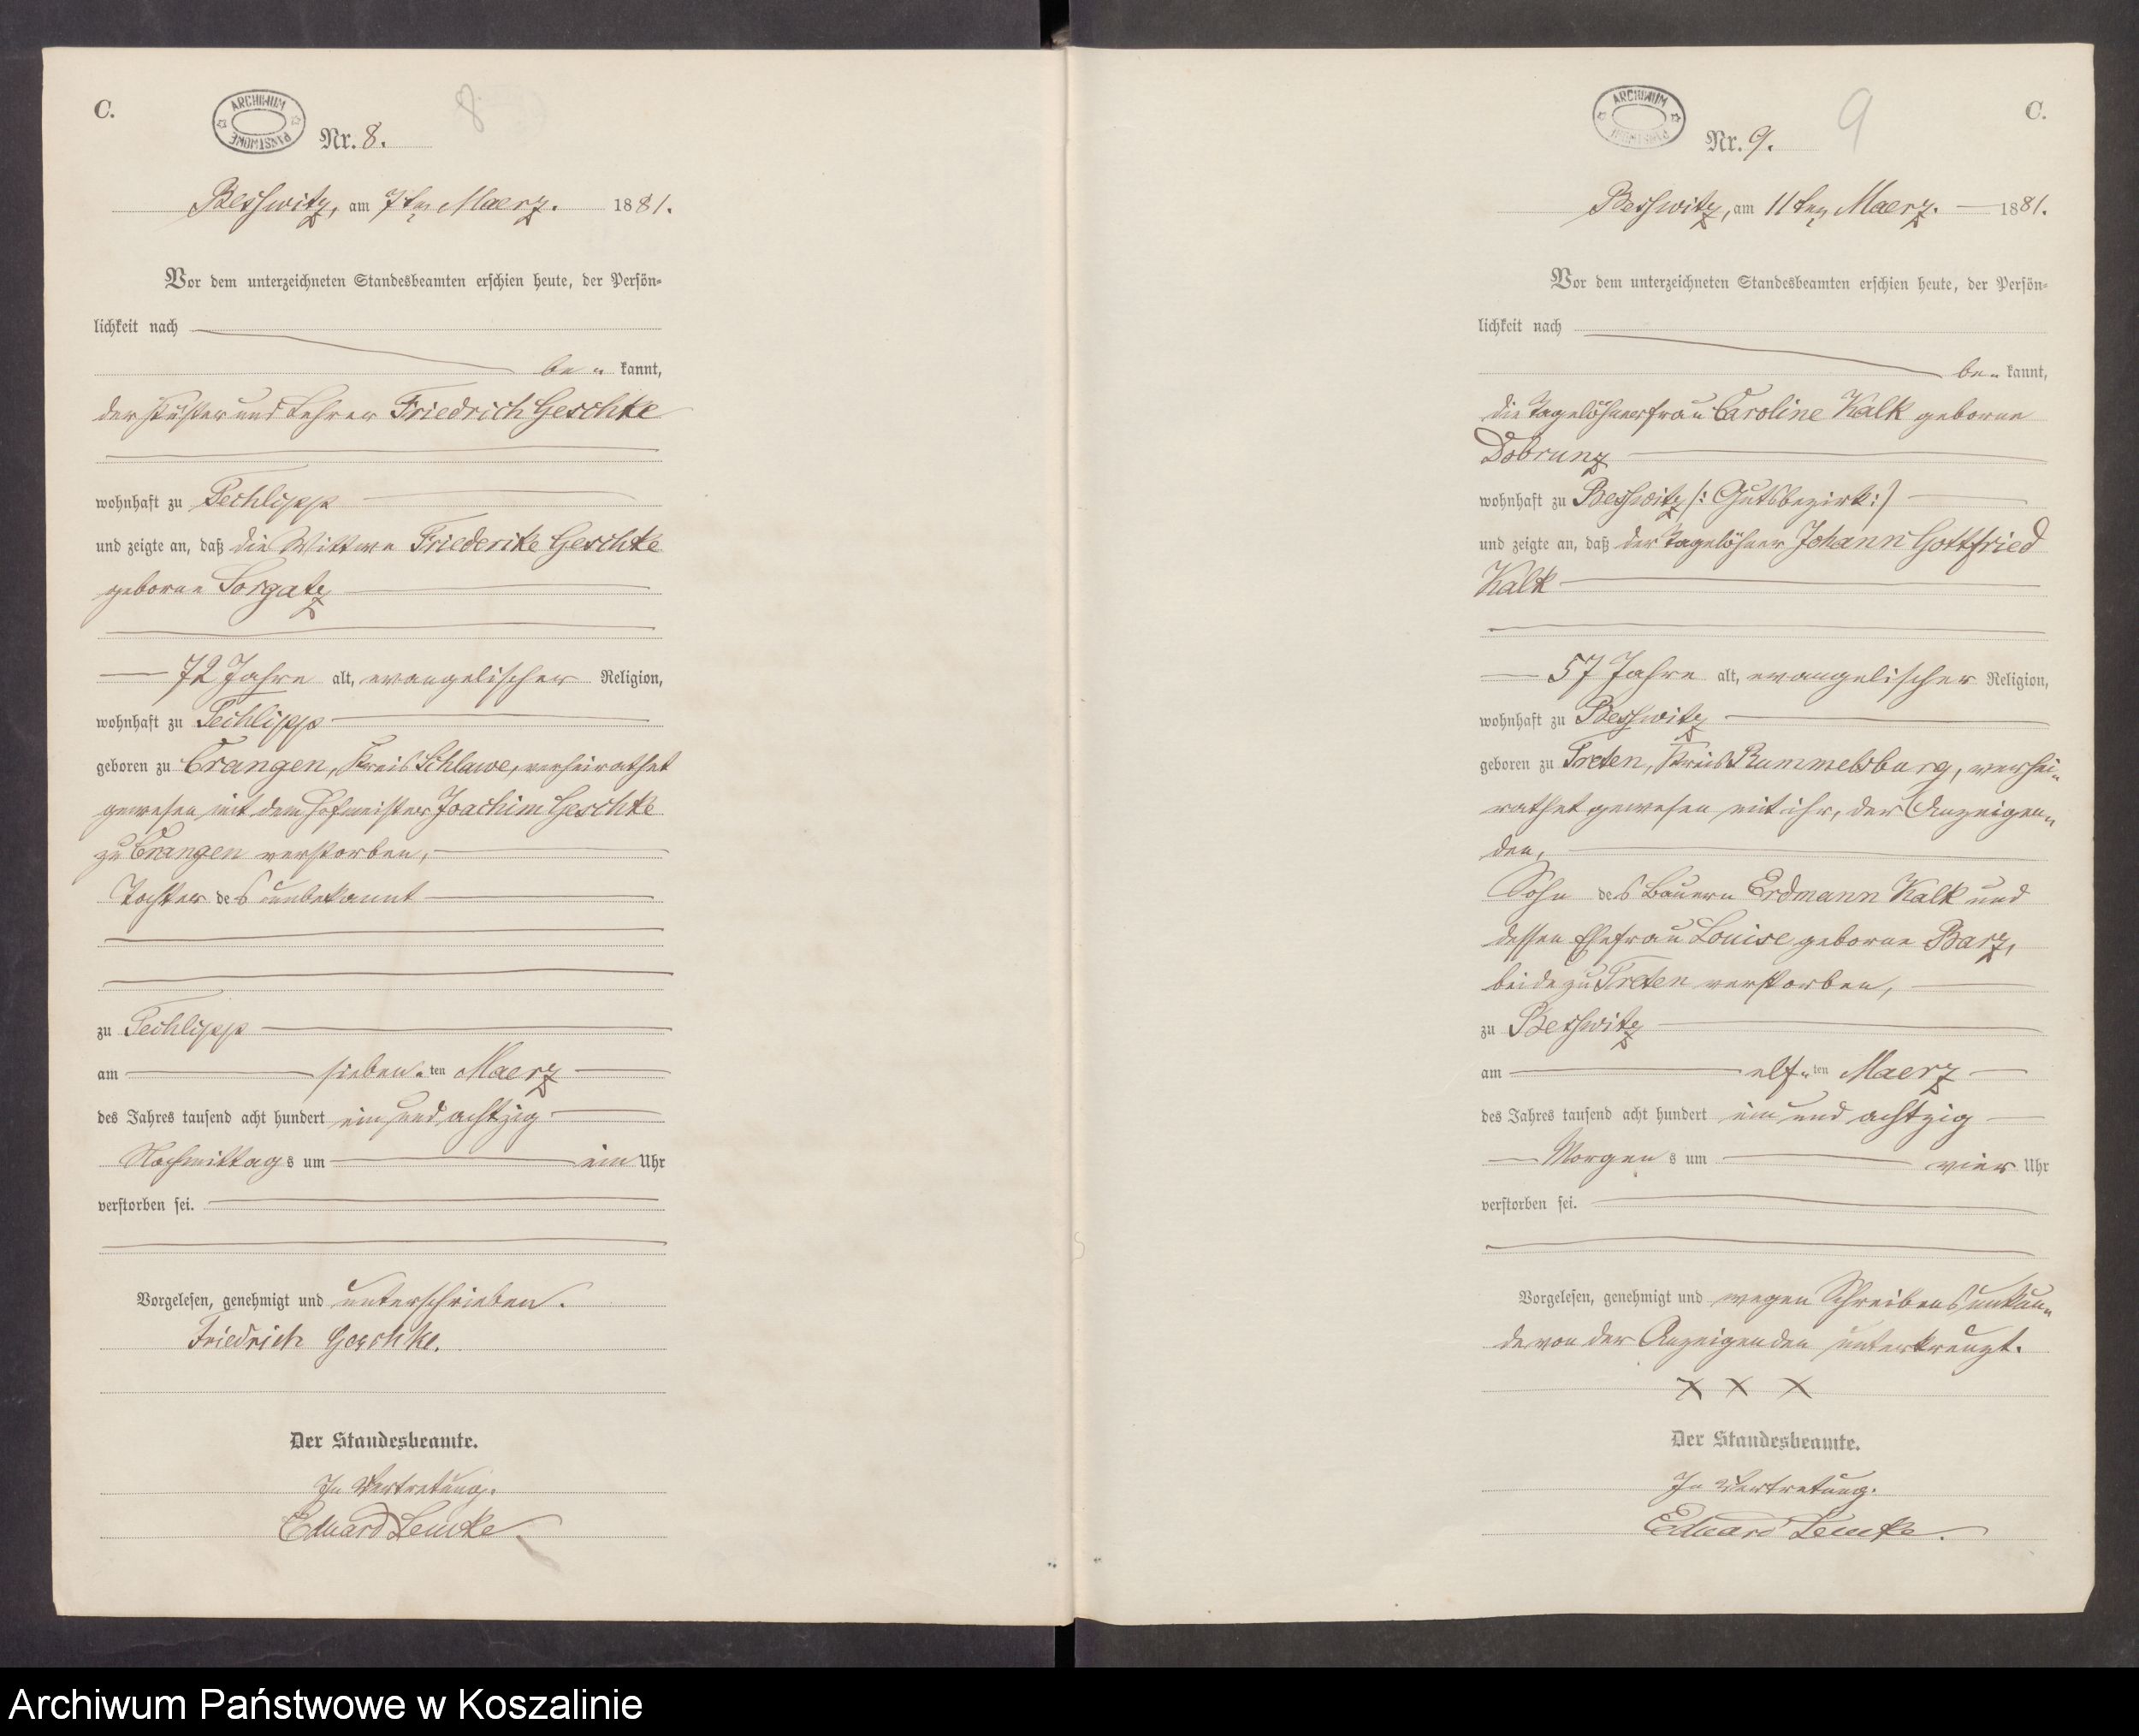 C.
ARCHIWUM PAŃSTWOWE
8
Nr. 8.
Besswitz, am 7ten Maerz. 1881.
Vor dem unterzeichneten Standesbeamten erschien heute, der Persön-
lichkeit nach
be- kannt,
der Küster und Lehrer Friedrich Geschke
wohnhaft zu Techlipp
und zeigte an, daß die Wittwe Friederike Geschke
geborne Sorgatz
72 Jahre alt, evangelischer Religion,
wohnhaft zu Techlipp
geboren zu Crangen, Kreis Schlawe, verheirathet
gewesen mit dem Hofmeister Joachim Geschke
zu Crangen verstorben,
Tochter des unbekannt
zu Techlipp
am sieben-ten Maerz
des Jahres tausend acht hundert ein und achtzig
Nachmittags um ein Uhr
verstorben sei.
Vorgelesen, genehmigt und unterschrieben.
Friedrich Geschke.
Der Standesbeamte.
In Vertretung.
Eduard Lemke
C.
ARCHIWUM PAŃSTWOWE
9
Nr. 9.
Besswitz, am 11ten Maerz. 1881.
Vor dem unterzeichneten Standesbeamten erschien heute, der Persön-
lichkeit nach
be- kannt,
die Tagelöhnerfrau Caroline Kalk geborne
Dobrunz
wohnhaft zu Besswitz /: Gutsbezirk :/
und zeigte an, daß der Tagelöhner Johann Gottfried
Kalk
57 Jahre alt, evangelischer Religion,
wohnhaft zu Besswitz
geboren zu Treten, Kreis Rummelsburg, verhei-
rathet gewesen mit ihr, der Anzeigen-
den,
Sohn des Bauern Erdmann Kalk und
dessen Ehefrau Louise geborne Barz,
beide zu Treten verstorben,
zu Besswitz
am elf-ten Maerz
des Jahres tausend acht hundert ein und achtzig
Morgens um vier Uhr
verstorben sei.
Vorgelesen, genehmigt und wegen Schreibensunkun-
de von der Anzeigenden unterkreuzt.
x x x
Der Standesbeamte.
In Vertretung.
Eduard Lemke.
Archiwum Państwowe w Koszalinie